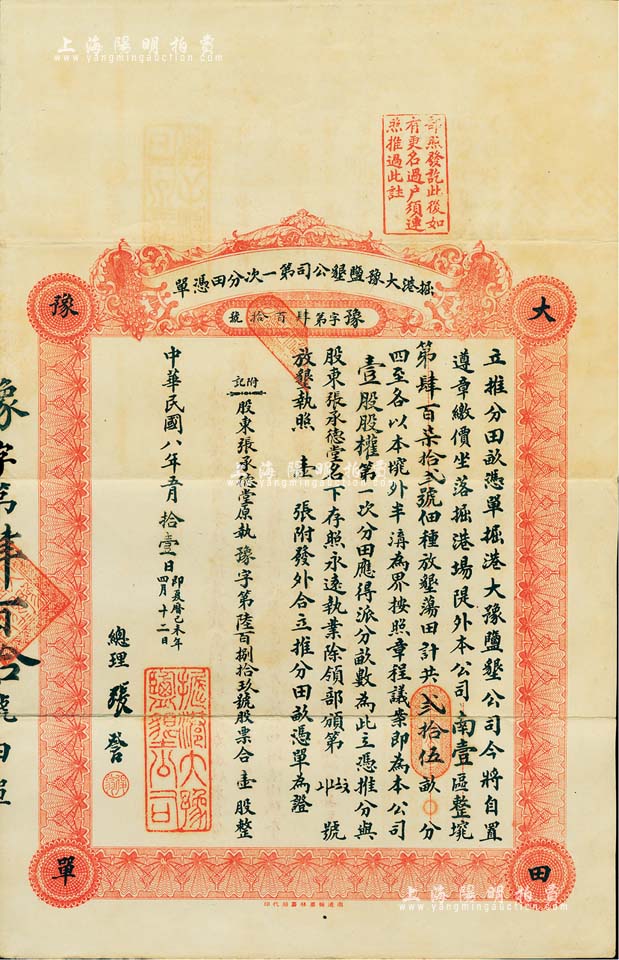 上海陽明拍賣
www.yangmingauction.com
部照發訖此後如
有更名過户須連
照推過此註
掘港大豫鹽墾公司第一次分田憑單
豫字第肆百拾號
大
豫
田
單
立推分田畝憑單掘港大豫鹽墾公司今將自置
遵章繳價坐落掘港場隄外本公司南壹區整㘰
第肆百柒拾弍號佃種放墾蕩田計共弍拾伍畝〇分
四至各以本㘰外半溝為界按照章程議案即為本公司
壹股股權第一次分田應得派分畝數為此立憑推分與
股東張承德堂名下存照永遠執業除領部頒第 號
放墾執照壹張附發外合立推分田畝憑單為證
附記
股東張承德堂原執豫字第陸百捌拾玖號股票合壹股整
中華民國八年五月拾壹日
即夏曆己未年
四月十二日
總理張詧
掘港大豫
鹽墾公司
豫字第肆百拾號田單
上海陽明拍賣
www.yangmingauction.com
上海陽明拍賣
www.yangmingauction.com
南通翰墨林書局代印